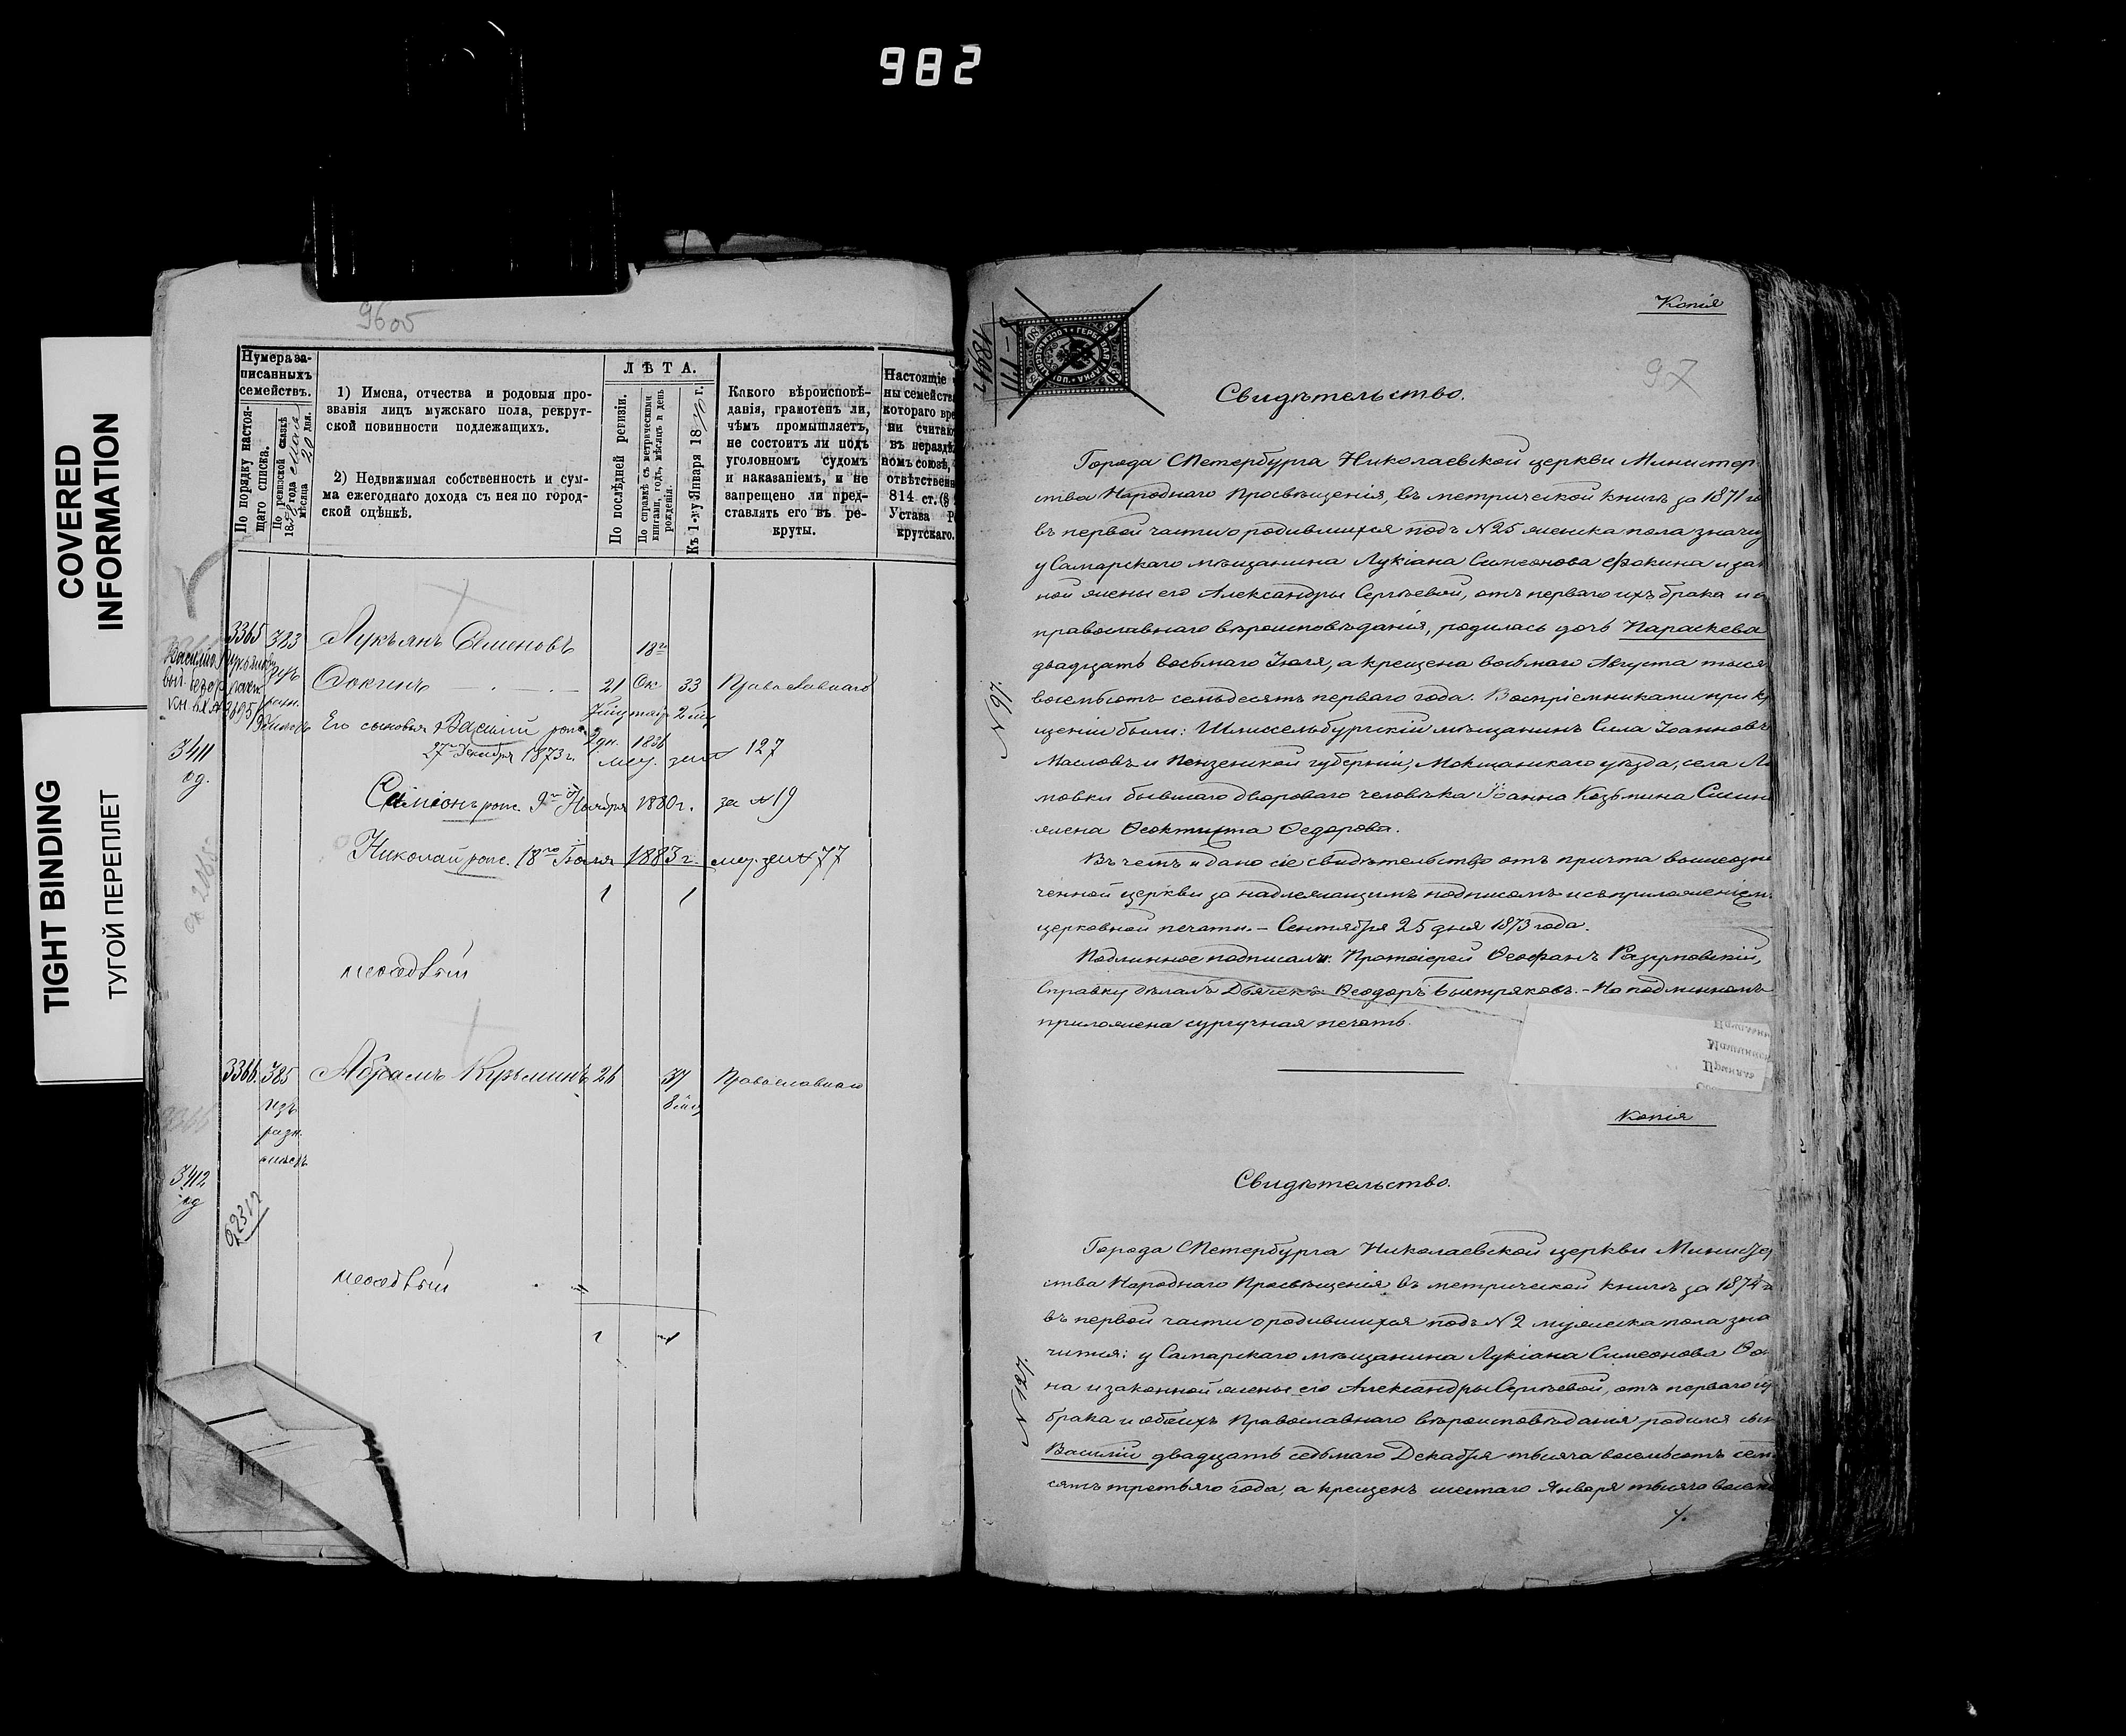 982
COVERED
INFORMATION
TIGHT BINDING
ТУГОЙ ПЕРЕПЛЕТ
96 об
Нумера за-
писанныхъ
семействъ.
По порядку настоя-
щаго списка.
По ревизской сказкѣ
1858 года
мѣсяца 20 дня.
1) Имена, отчества и родовыя про-
званія лицъ мужскаго пола, рекрут-
ской повинности подлежащихъ.
2) Недвижимая собственность и сум-
ма ежегоднаго дохода съ нея по город-
ской оцѣнкѣ.
ЛѢТА.
По послѣдней ревизіи.
По справкѣ съ метрическими
книгами, годъ, мѣсяцъ и день
рожденія.
Къ 1-му Января 18 г.
Какого вѣроисповѣ-
данія, грамотенъ ли,
чѣмъ промышляетъ,
не состоитъ ли подъ
уголовномъ судомъ
и наказаніемъ, и не
запрещено ли пред-
ставлять его въ ре-
круты.
Настоящіе
ны семейства
котораго вре
ни считаю
въ нераздѣ
номъ союзѣ,
отвѣтственн
814 ст. (§
Устава Р
крутскаго.
3365 383 Лукьянъ Семеновъ 18го
Фокинъ 21 Ок 33 Православнаго
Его сыновья Василій рож. 2дн. 1836
27го Декабря 1873 г. 127
3411
од.
Симеонъ рож. 9го Ноября 1880 г. за №19
Николай рож. 18го Іюля 1883 г. 77
1 1
3366. 385 Абрамъ Кузьминъ 26 37 Православнаго
8
3366
3412
од
1 1
Копія
97
Свидѣтельство.
Города СПетербурга Николаевской церкви Министер
ства Народнаго Просвѣщенія, въ метрической книгѣ за 1871 го
въ первой части о родившихся подъ №25 женска пола значи
у Самарскаго мѣщанина Лукіана Симеонова Фокина и зак
ной жены его Александры Сергѣевой, отъ перваго ихъ брака и о
православнаго вѣроисповѣданія, родилась дочь Параскева
двадцать восьмаго Іюля, а крещена восьмаго Августа тыся
восемьсотъ семьдесятъ перваго года. Воспріемниками при кр
щеніи были: Шлиссельбургскій мѣщанинъ Сила Іоанновъ
Масловъ и Пензенской губерніи, Мокшанскаго уѣзда, села
повки бывшаго двороваго человѣка Іоанна Козьмина
жена Феоктиста Федорова.
Въ чемъ и дано сіе свидѣтельство отъ причта вышеозна
ченной церкви за надлежащимъ подписомъ и съ приложеніем
церковной печати. – Сентября 25 дня 1873 года.
Подлинное подписали: Протоіерей Феофанъ Разумовскій,
Справку дѣлалъ Дьячекъ Феодоръ Быстряковъ. – На подлинномъ
приложена сургучная печать.
N 97.
Копія
Свидѣтельство.
Города СПетербурга Николаевской церкви Министер
ства Народнаго Просвѣщенія въ метрической книгѣ за 1874 г
въ первой части о родившихся подъ №2 мужеска пола зна
чится: у Самарскаго мѣщанина Лукіана Симеонова Фок
на и законной жены его Александры Сергѣевой, отъ перваго их
брака и обоихъ Православнаго вѣроисповѣданія родился сын
Василій двадцать седьмаго Декабря тысяча восемьсотъ семь
сятъ третьяго года, а крещенъ шестаго Января тысяча восем
N 127.